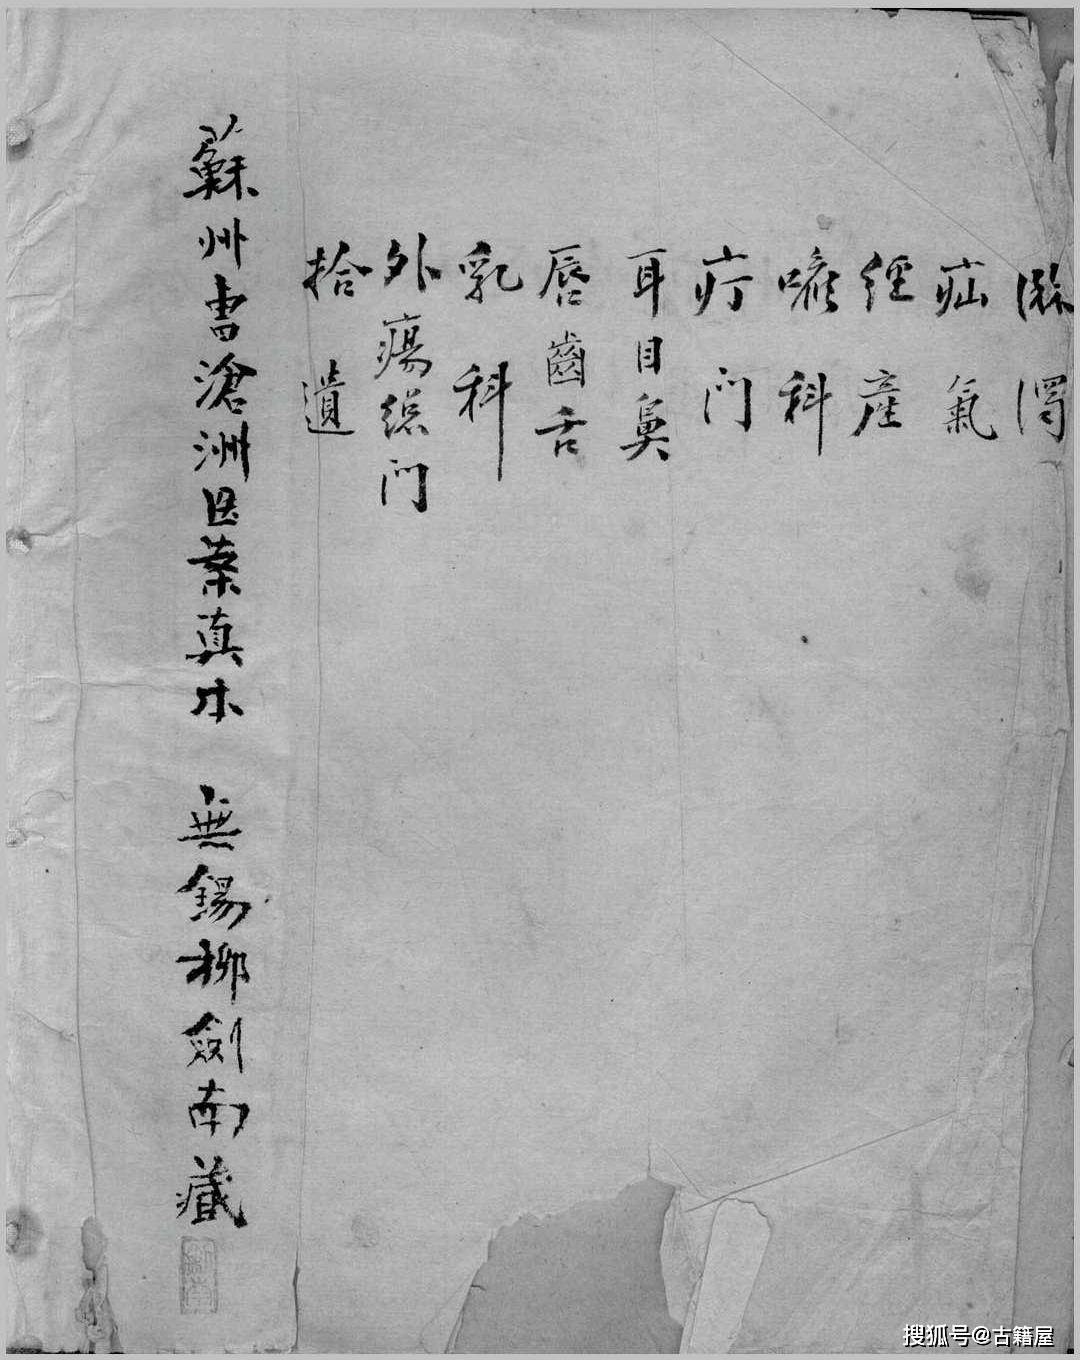 淋濁
疝氣
經產
喉科
疔门
耳目鼻
唇齒舌
乳科
外瘍總门
拾遺
蘇州曹滄洲医案真本 無錫柳劍南藏
搜狐号@古籍屋